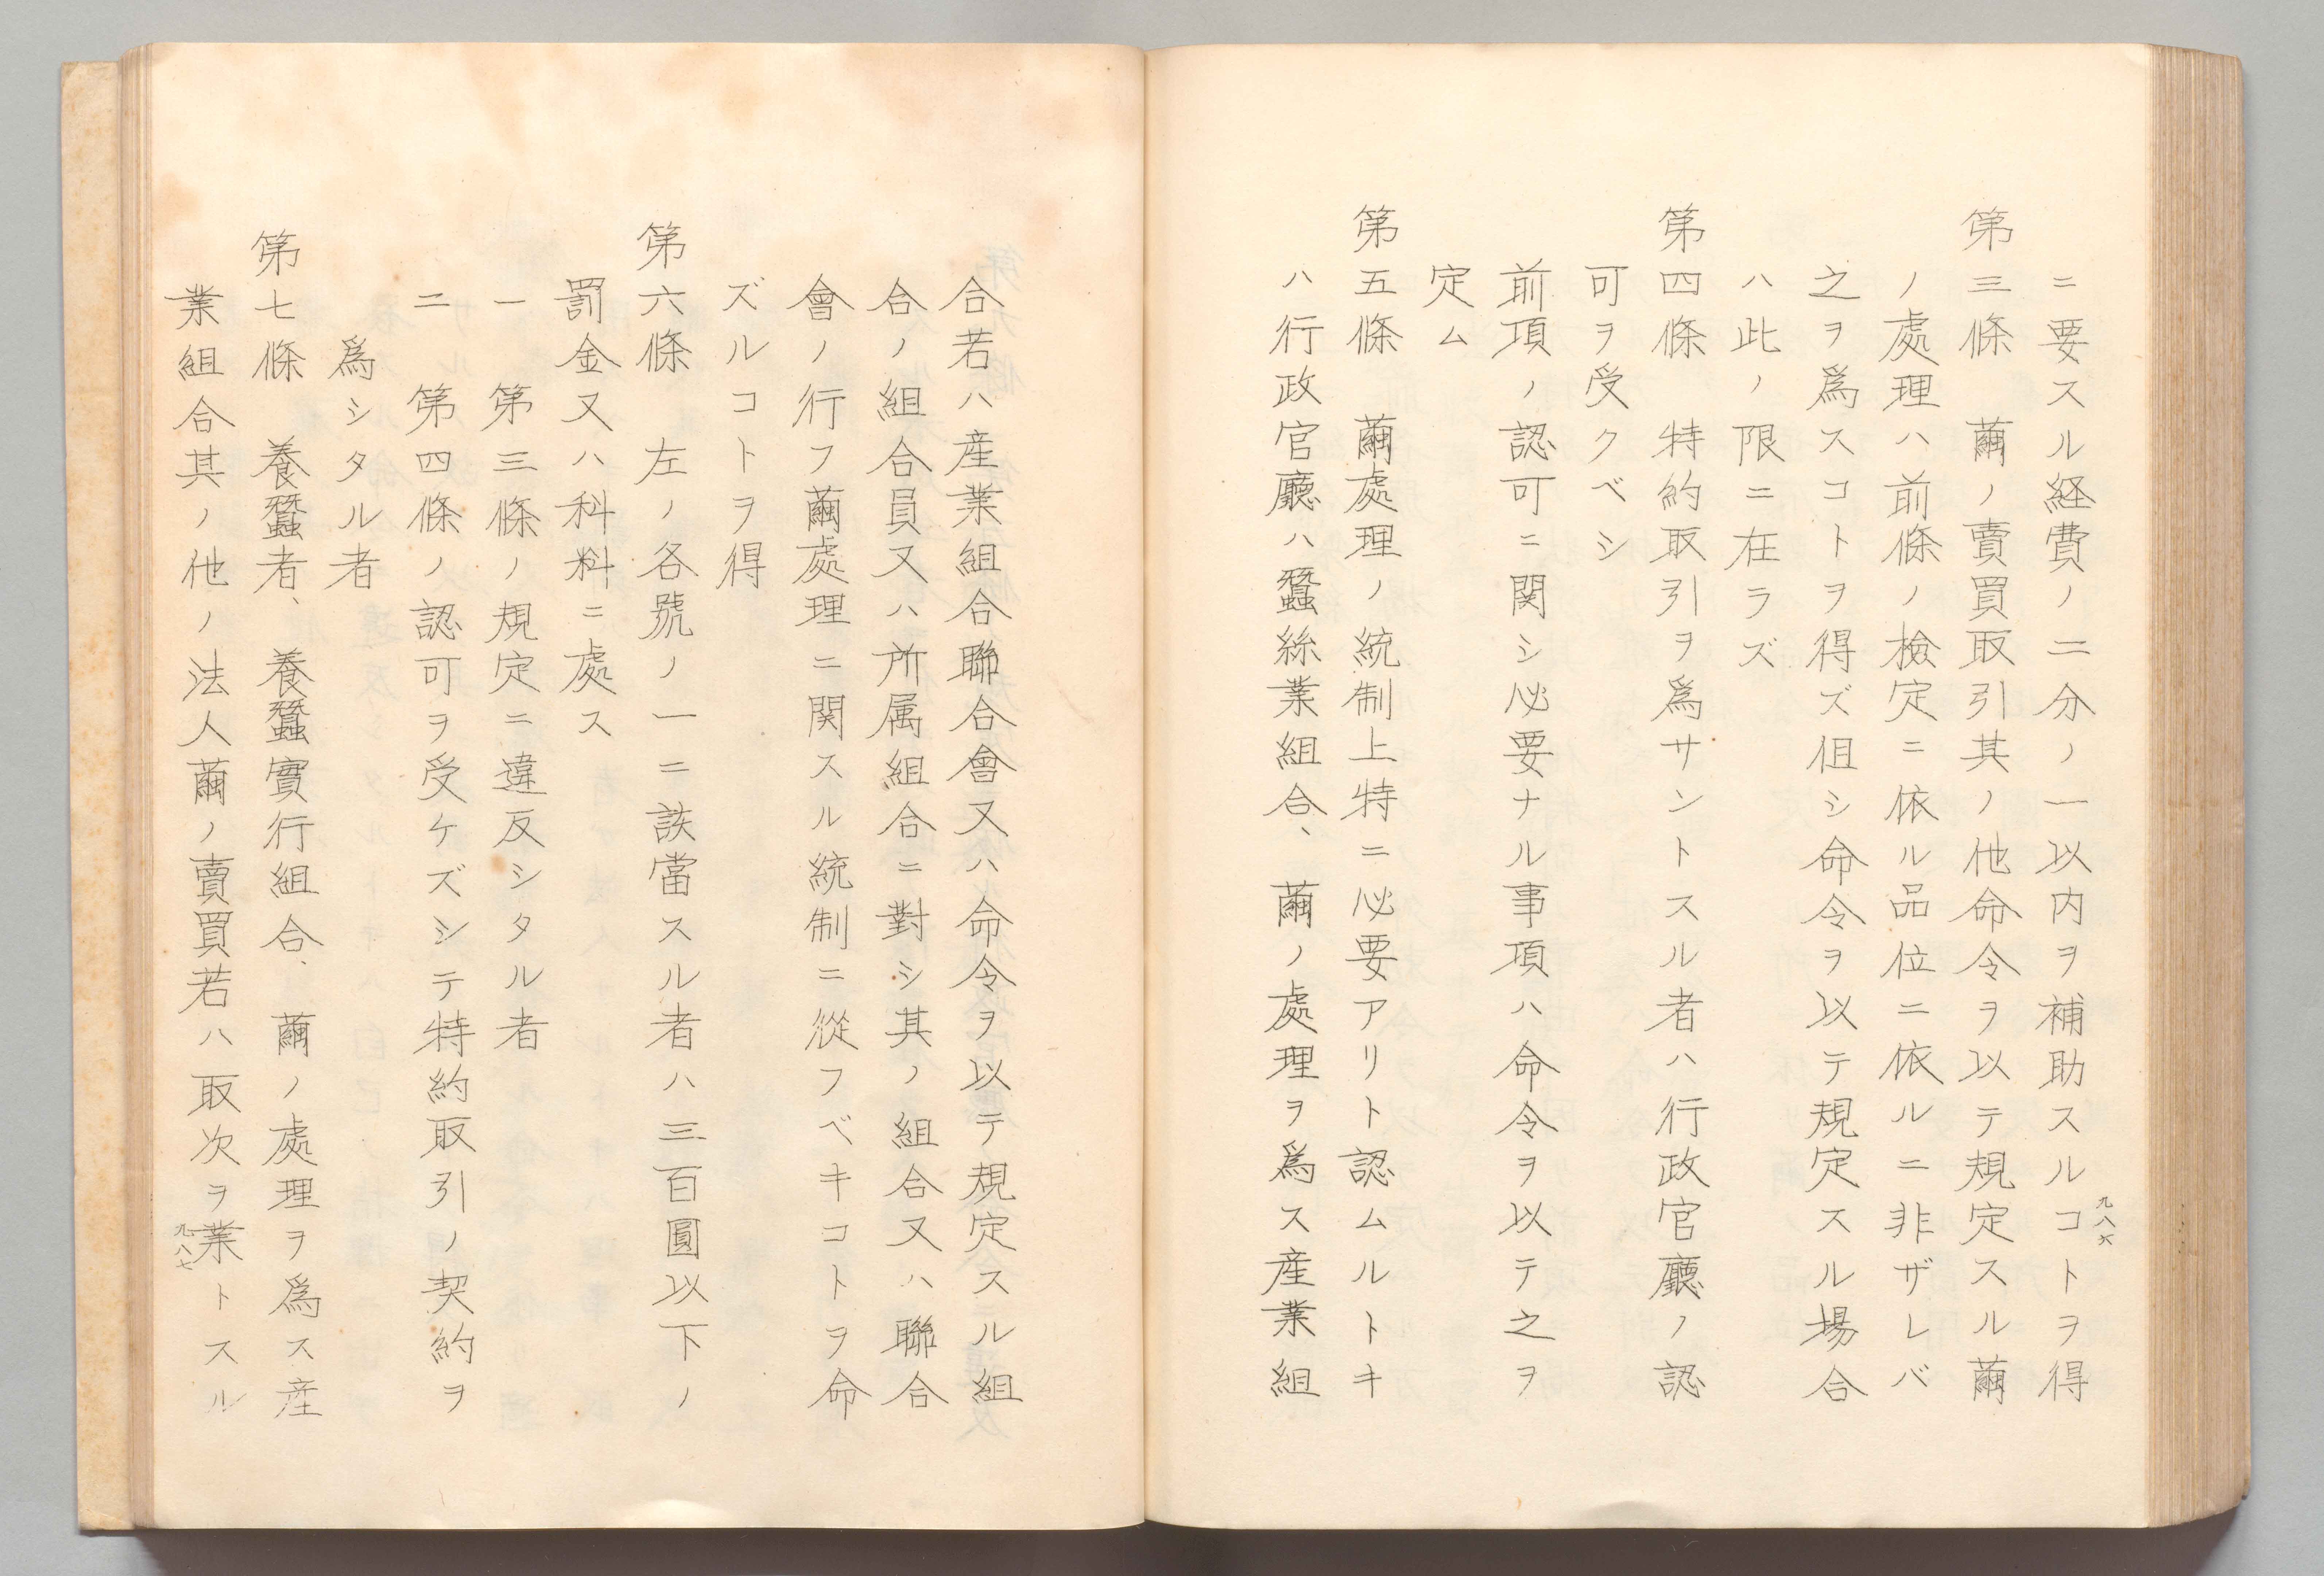 ニ要スル経費ノ二分ノ一以内ヲ補助スルコトヲ得
第三條　繭ノ賣買取引其ノ他命令ヲ以テ規定スル繭
ノ處理ハ前條ノ檢定ニ依ル品位ニ依ルニ非ザレバ
之ヲ爲スコトヲ得ズ但シ命令ヲ以テ規定スル場合
ハ此ノ限ニ在ラズ
第四條　特約取引ヲ爲サントスル者ハ行政官廳ノ認
可ヲ受クベシ
前項ノ認可ニ関シ必要ナル事項ハ命令ヲ以テ之ヲ
定ム
第五條　繭處理ノ統制上特ニ必要アリト認ムルトキ
ハ行政官廳ハ蠶絲業組合、繭ノ處理ヲ爲ス産業組
九八六
合若ハ産業組合聯合會又ハ命令ヲ以テ規定スル組
合ノ組合員又ハ所属組合ニ對シ其ノ組合又ハ聯合
會ノ行フ繭處理ニ関スル統制ニ從フベキコトヲ命
ズルコトヲ得
第六條　左ノ各號ノ一ニ該當スル者ハ三百圓以下ノ
罰金又ハ科料ニ處ス
一　第三條ノ規定ニ違反シタル者
二　第四條ノ認可ヲ受ケズシテ特約取引ノ契約ヲ
爲シタル者
第七條　養蠶者、養蠶實行組合、繭ノ處理ヲ爲ス産
業組合其ノ他ノ法人繭ノ賣買若ハ取次ヲ業トスル
九八七